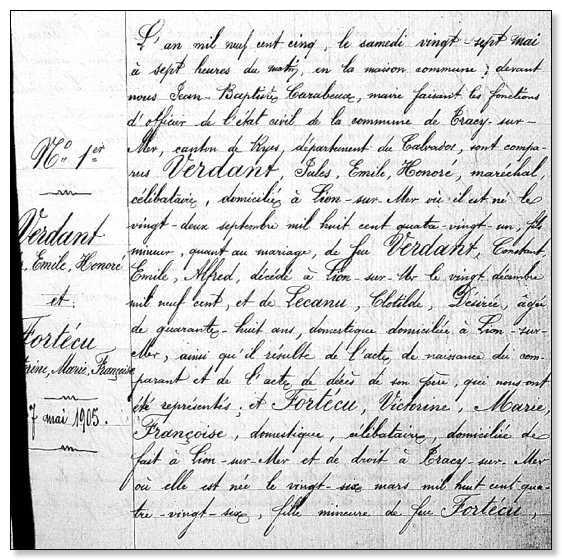 N.o 1er
Verdant
, Emile, Honoré
et
Fortécu
Marie, Françoise
7 mai 1905.
L'an mil neuf cent cinq, le samedi vingt-sept mai
à sept heures du matin, en la maison commune, devant
nous Jean-Baptiste Carabeux, maire faisant les fonctions
d'officier de l'état civil de la commune de Tracy-sur-
Mer, canton de Ryes, département du Calvados, sont compa-
rus Verdant, Jules, Emile, Honoré, maréchal,
célibataire, domicilié à Lion-sur-Mer où il est né le
vingt-deux septembre mil huit cent quatre-vingt-un, fils
mineur, quant au mariage, de feu Verdant, Constant,
Emile, Alfred, décédé à Lion-sur-Mer le vingt décembre
mil neuf cent, et de Lecanu, Clotilde, Désirée, âgée
de quarante-huit ans, domestique domiciliée à Lion-sur-
Mer, ainsi qu'il résulte de l'acte de naissance du com-
parant et de l'acte de décès de son père, qui nous ont
été représentés, et Fortécu, Victorine, Marie,
Françoise, domestique, célibataire, domiciliée de
fait à Lion-sur-Mer et de droit à Tracy-sur-Mer
où elle est née le vingt-six mars mil huit cent qua-
tre-vingt-six, fille mineure de feu Fortécu,